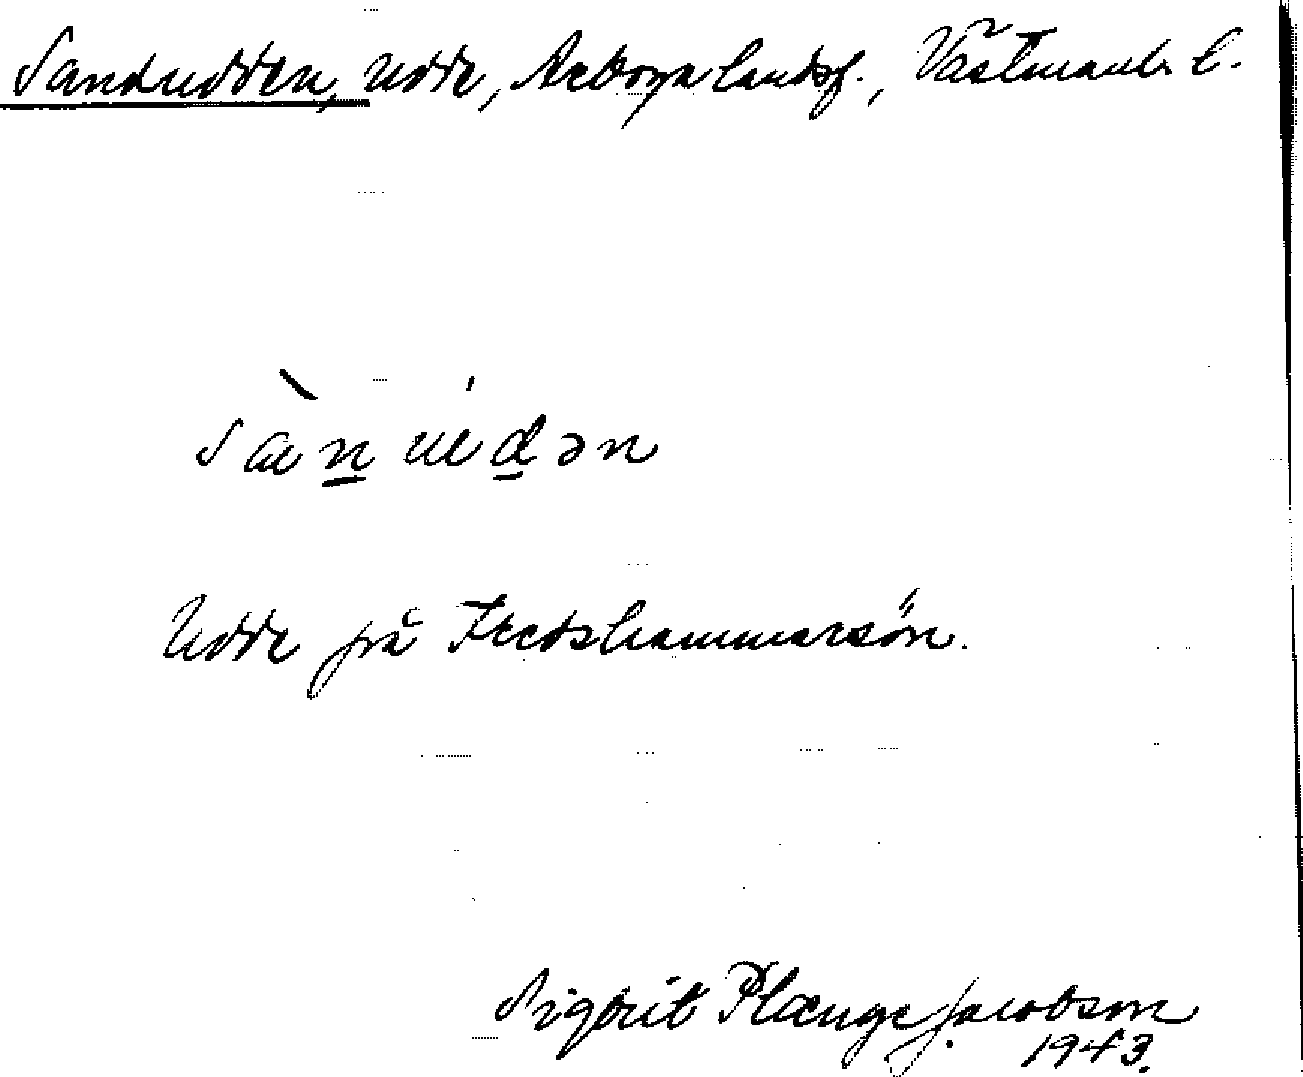 Sandudden, udde, Arboga landsf., Västmanl. l.
sànudən
Udde på Fredshammarsön.
Sigbrit Plænge Jacobson
1943.